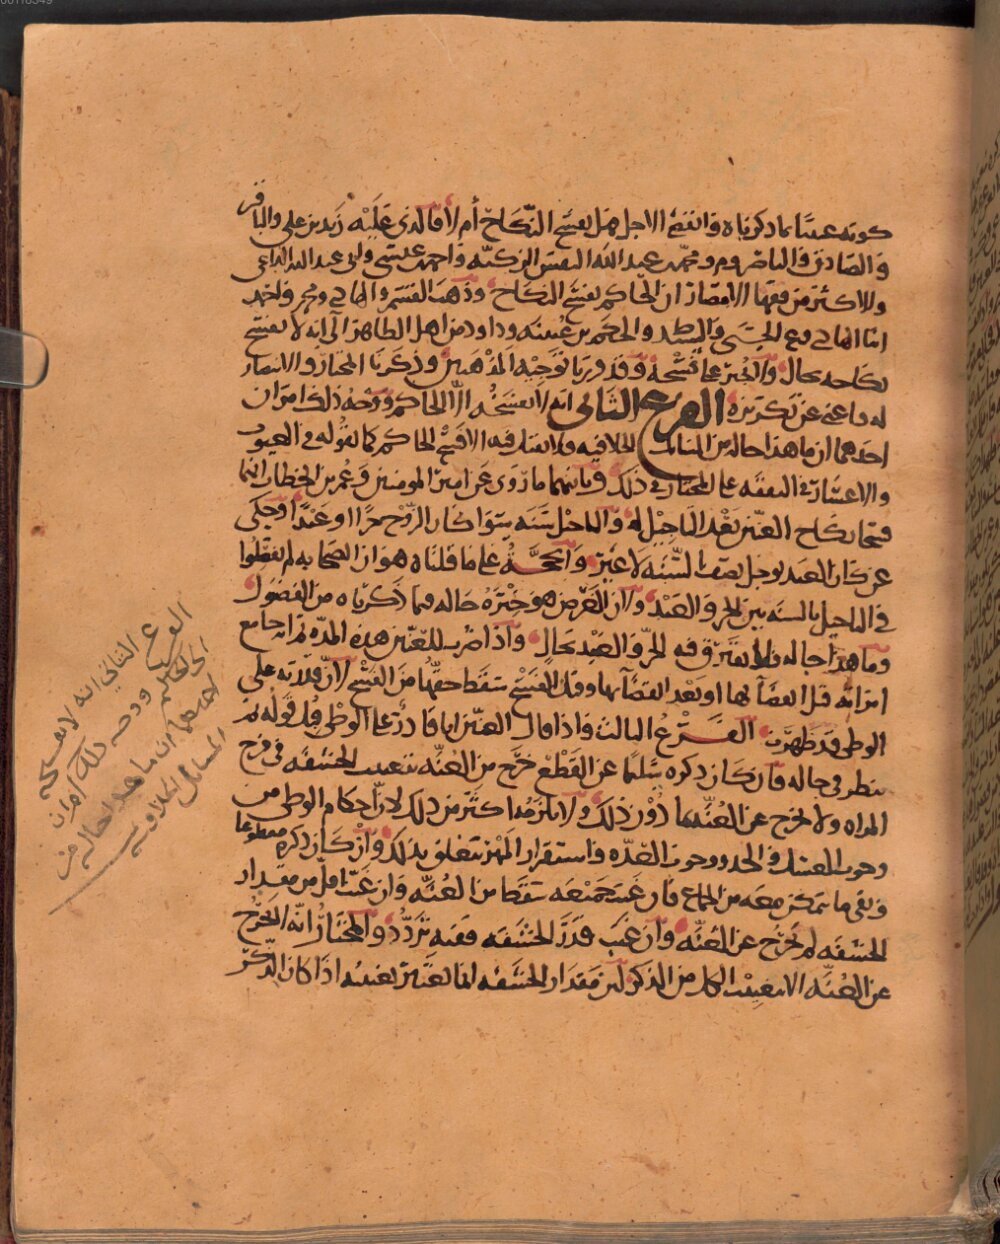 كونه عنينا بما ذكرناه وانقضى الاجل هل يفسخ النكاح أم لا فالذي عليه زيد بن علي والباقر
والصادق والناصر وم ومحمد بن عبد الله النفس الزكية واحمد بن عيسى وابي عبد الله الداعي
والاكثر من فقهاء الامصار ان الحاكم يفسخ النكاح وذهب القسم والهادي وم
انما الهادي وع وط والحكم بن عيينه وداود من اهل الظاهر الى انه لا يفسخ
نكاحه بحال والخبر على فسخه وقد قررنا توجيه المذهبين وذكرنا المختار والانتصار
له فاغنى عن تكريره الفرع الثاني انه لا يفسخه الا الحاكم ووجه ذلك امران
احدهما ان ما هذا حاله من المسائل الخلافيه فلا يقبل فيه الا فسخ الحاكم كما نقوله في العيوب
والاعسار في النفقه على المختار في ذلك وثانيهما ما روي عن امير المومنين وعمر بن الخطاب انهما
فسخا نكاح العنين بعد التاجيل له والتاجيل سنه سوا كان الزوج حرا او عبدا وحكي
عن كان العبد يوجل نصف السنه لا غير والحجة على ما قلناه هو ان الصحابه لم يفصلوا
في التاجيل بالسنه بين الحر والعبد ولان الغرض هو خبرة حاله فيما ذكرناه من الفصول
وما هذا حاله فلا يفترق فيه الحر والعبد بحال واذا ضرب للعنين هذه المدة ثم انه جامع
امراته قبل انقضائها او بعد انقضائها وقبل الفسخ سقط حقها من الفسخ لان قدرته على
الوطي قد ظهرت الفرع الثالث فاذا قال العنين انا قادر على الوطي قبل قوله ثم
ينظر في حاله فان كان ذكره سليما عن القطع خرج من العنه بتغييب الحشفه في فرج
المراه ولا يخرج عن العنه بما دون ذلك ولا يلزمه اكثر من ذلك لان احكام الوطي من
وجوب الغسل والحد ووجوب العده واستقرار المهر يتعلق بذلك وان كان ذكره مقطوعا
وبقي ما يمكن معه من الجماع فان غيب جميعه سقط من العنه وان غيب اقل من مقدار
الحشفه لم يخرج عن العنه وان غيب قدر الحشفه ففيه تردد والمختار انه لا يخرج
عن العنه الا بتغييب الكل من الذكر لان مقدار الحشفه انما يعتبر تغييبه اذا كان الذكر
الفرع الثاني انه لا يفسخه
الا الحاكم ووجه ذلك امران
احدهما ان ما هذا حاله من
المسائل الخلافيه